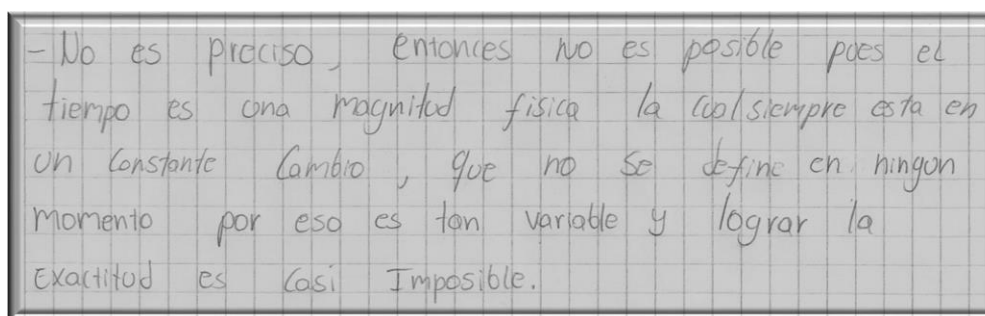 - No es preciso, entonces no es posible pues el
tiempo es una magnitud fisica la cual siempre esta en
un constante cambio, que no se define en ningun
momento por eso es tan variable y lograr la
Exactitud es casi Imposible.